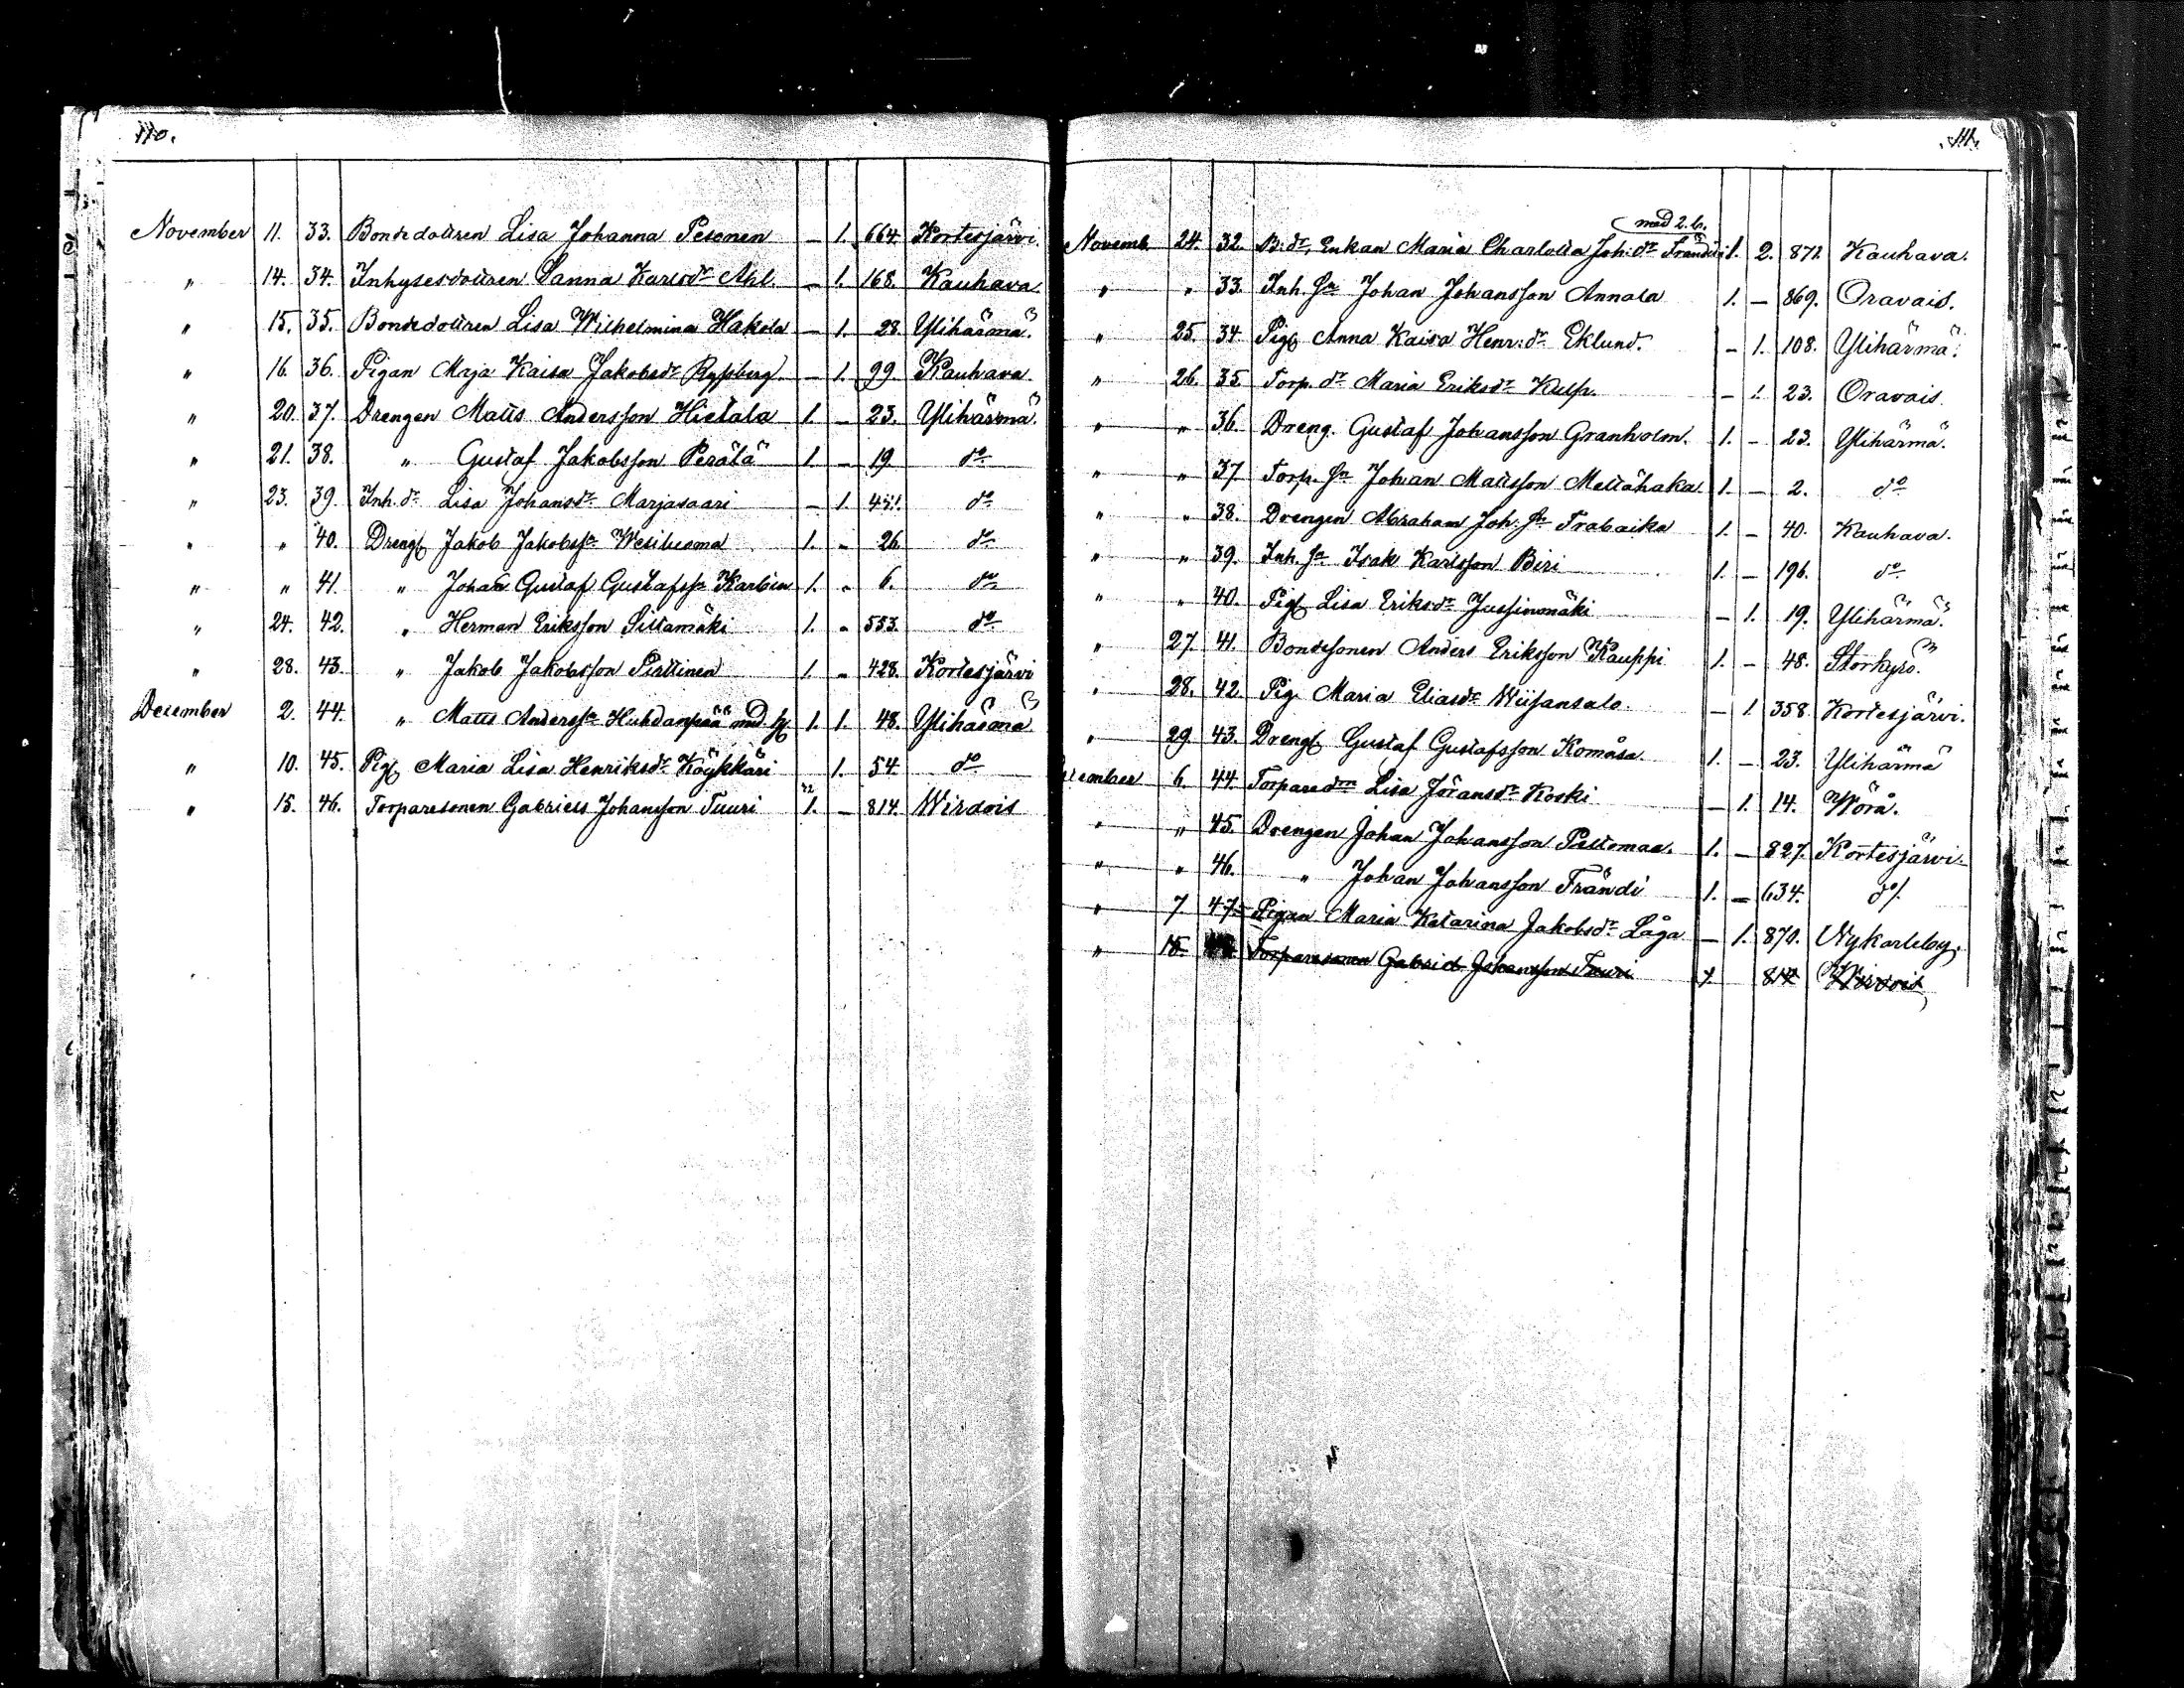 110.
November 11. 33. Bondedottren Lisa Johanna Pesonen — 1. 664. Kortesjärvi.
" 14. 34. Inhysesdottren Sanna Karlsdr Ahl. — 1. 168. Kauhava.
" 15. 35. Bondedottren Lisa Wilhelmina Hakola — 1. 28. Ylihärmä.
" 16. 36. Pigan Maja Kaisa Jakobsdr — 1. 99 Kauhava.
" 20. 37. Drengen Matts Andersson Hietala 1. — 23. Ylihärmä.
" 21. 38. " Gustaf Jakobsson Perälä 1. — 19. do
" 23. 39. Inh. dr Lisa Johansdr Marjasaari — 1. do
" " 40. Dreng Jakob Jakobss. Wesiluoma 1. " 26. do
" " 41. " Johan Gustaf Gustafss. 1. " 6. do
" 24. 42. " Herman Eriksson Sillamäki 1. " 553. do
" 28. 43. " Jakob Jakobsson Pirttinen 1. " 428. Kortesjärvi
December 2. 44. " Matts Anderss. Huhdanpää med h. 1. 1. 48. Ylihärmä
" 10. 45. Pig. Maria Lisa Henriksdr Köykkäri 1. 54. do
" 15. 46. Torparesonen Gabriels Johansson Tuuri 1. — 814. Wirdois
111.
med 2. b.
Novemb. 24. 32. B. dr, Enkan Maria Charlotta Joh. dr Frändi 1. 2. 871. Kauhava.
" " 33. Inh. sn Johan Johansson Annala 1. — 869. Oravais.
" 25. 34. Pig. Anna Kaisa Henr: dr Eklund. — 1. 108. Ylihärmä.
" 26. 35. Torp. dr Maria Eriksdr — 1. 23. Oravais.
" " 36. Dreng. Gustaf Johansson Granholm. 1. — 23. Ylihärmä.
" " 37. Torp. sn Johan Mattsson Mettähaka. 1. — 2. do
" " 38. Drengen Abraham Joh: sn Trabaika 1. — 40. Kauhava.
" " 39. Inh. sn Isak Karlsson Biri 1. — 196. do
" " 40. Pig. Lisa Eriksdr Jussinmäki — 1. 19. Ylihärmä.
" 27. 41. Bondesonen Anders Eriksson Kauppi 1. — 48. Storkyro.
" 28. 42. Pig. Maria Eliasdr Wiijansalo. — 1. 358. Kortesjärvi.
" 29. 43. Dreng. Gustaf Gustafsson Komåsa. 1. — 23. Ylihärmä
December 6. 44. Torparedon Lisa Jöransdr Koski — 1. 14. Wörå.
" " 45. Drengen Johan Johansson Peltomaa. 1. — 827. Kortesjärvi.
" " 46. " Johan Johansson Frändi 1. — 634. do.
" 7. 47. Pigan Maria Katarina Jakobsdr Låga — 1. 870. Nykarleby.
" 15. Torparesonen Gabriel Johansson Tuuri 1. 814 Wirdois